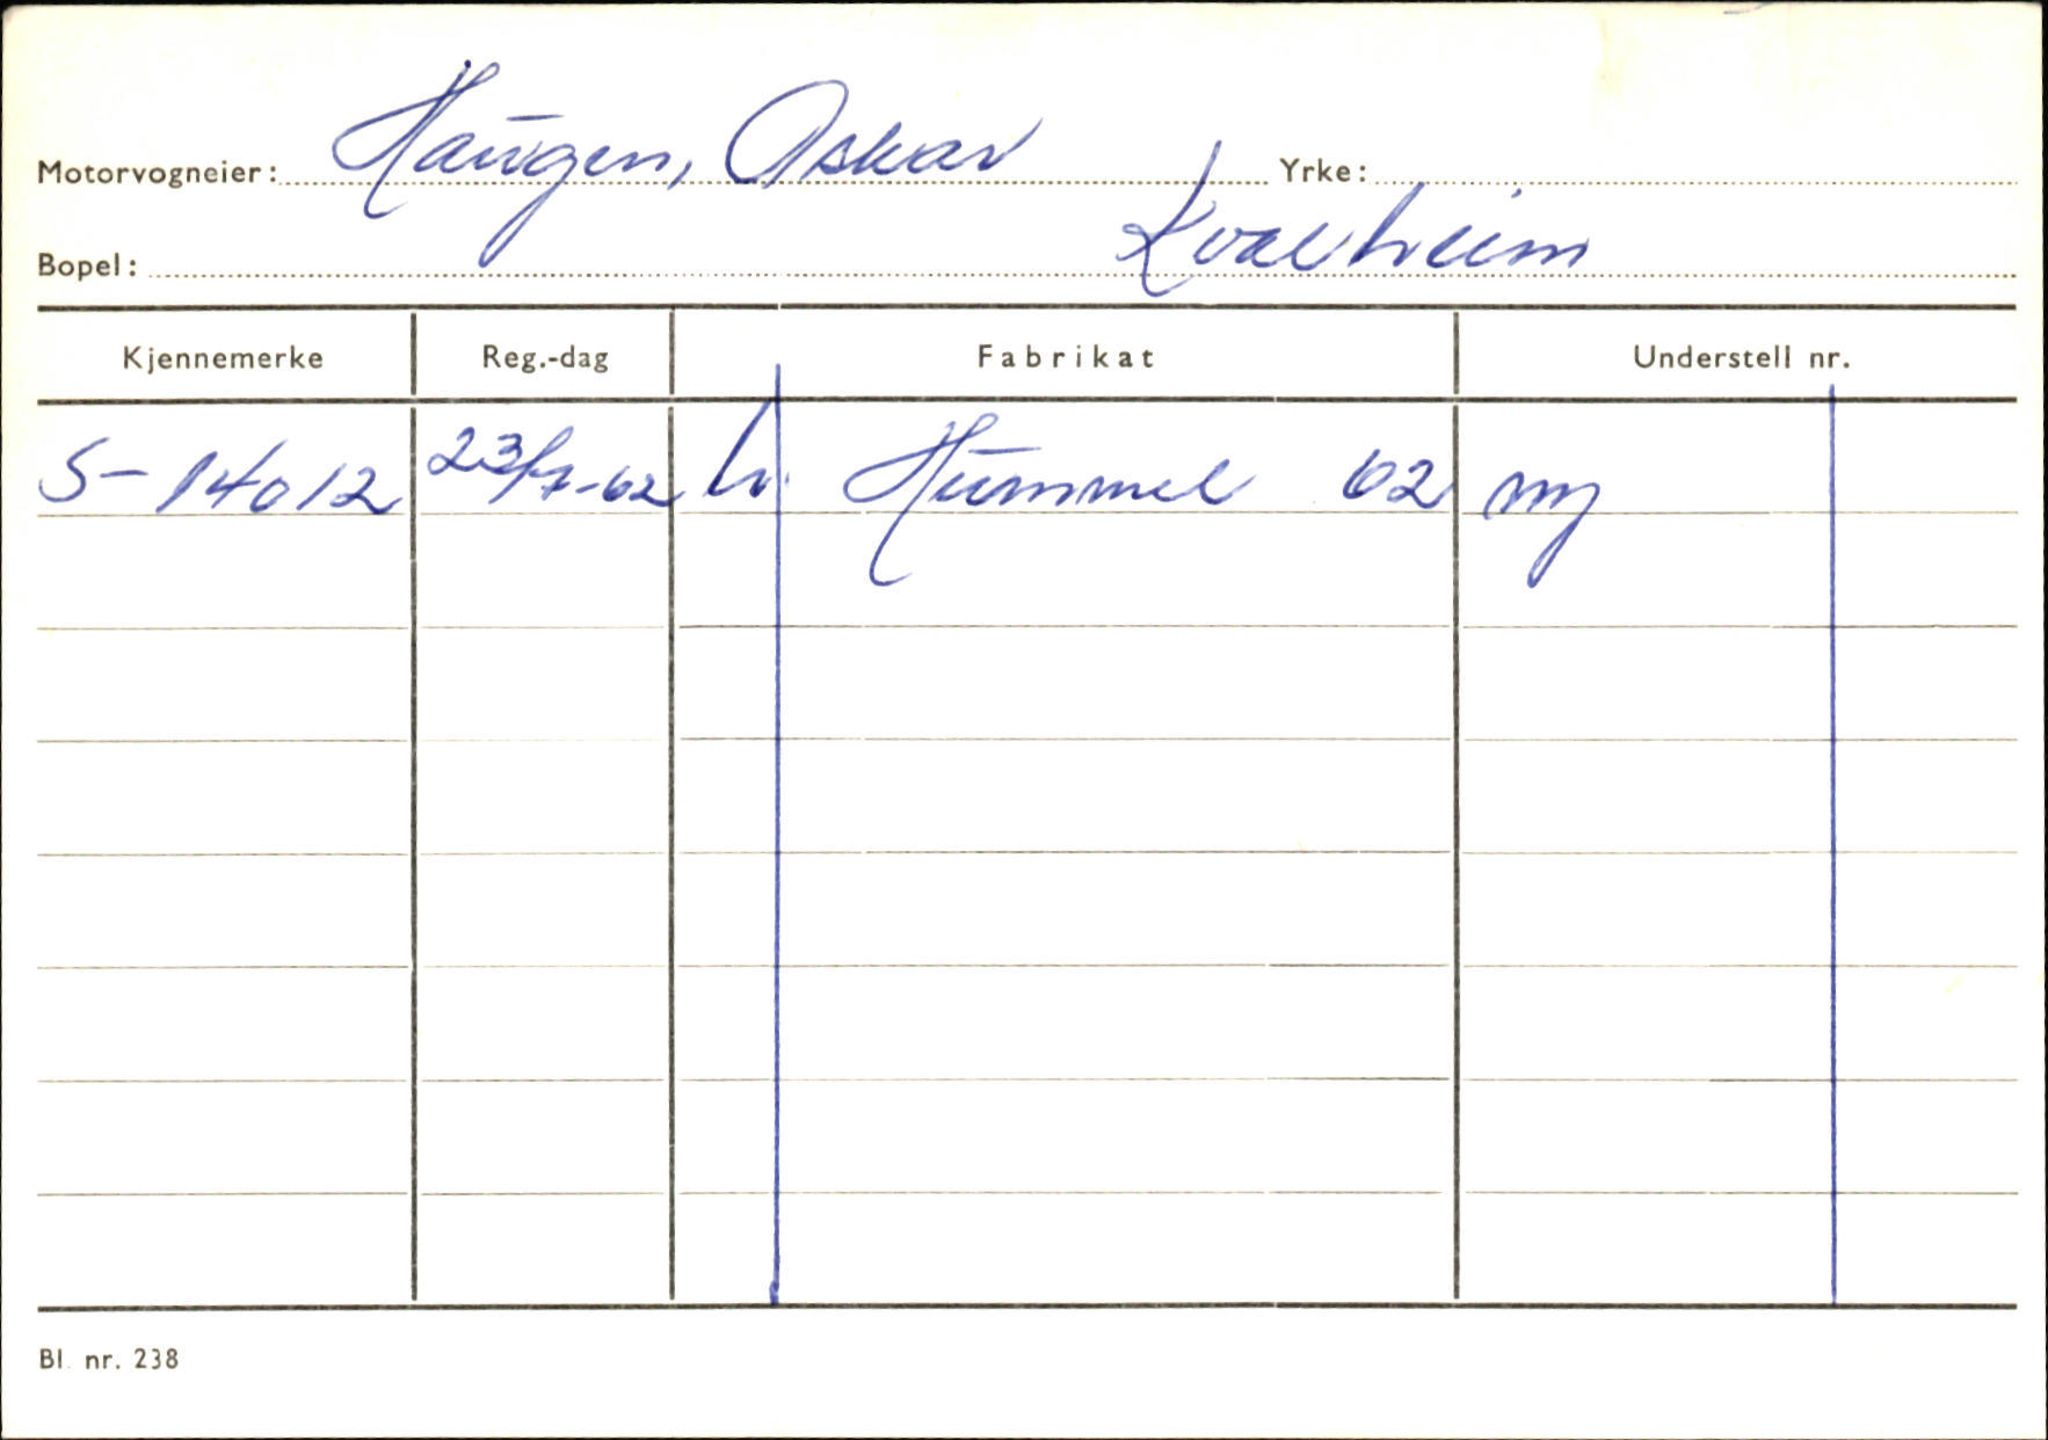 Motorvogneier: Haugen, Oskar Yrke:
Bopel: Kvalheim
Kjennemerke Reg.-dag Fabrikat Understell nr.
S-14012 23/7-62 lv. Hummel 62 ny
Bl. nr. 238